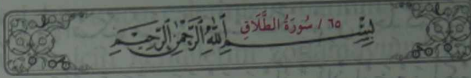 ٦٥ / سُورَةُ الطَّلَاقِ
بِسْمِ اللَّهِ الرَّحْمَٰنِ الرَّحِيمِ